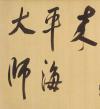 平海
大師